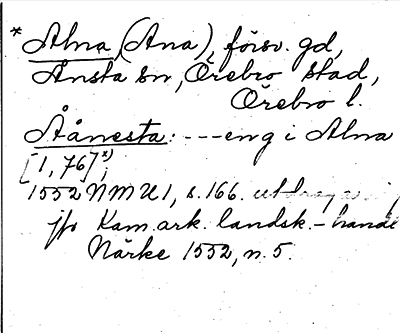 * Alna (Ana), försv. gd,
Ånsta sn, Örebro stad,
Örebro l.
Åånesta: ---eng i Alna
[1,76]*);
1552 NMU 1, s. 166. utdrag
jfr Kam.ark. landsk.-handl
Närke 1552, n. 5.